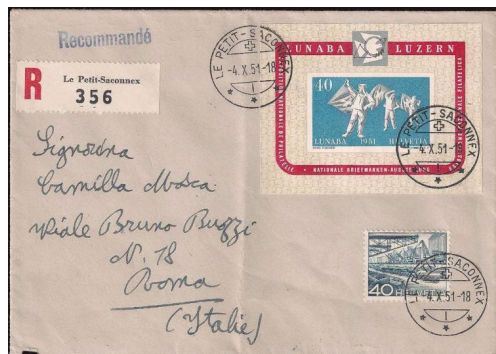 Recommandé
R
Le Petit-Saconnex
356
LE PETIT-SACONNEX
-4.X.51-18
LUNABA LUZERN
40
LUNABA 1951 HELVETIA
NATIONALE BRIEFMARKEN-AUSSTELLUNG
LE PETIT-SACONNEX
-4.X.51-18
Signorina
Camilla Mosca
Viale Bruno Buozzi
N. 18
Roma
(Italie)
40 HELVETIA
LE PETIT-SACONNEX
-4.X.51-18